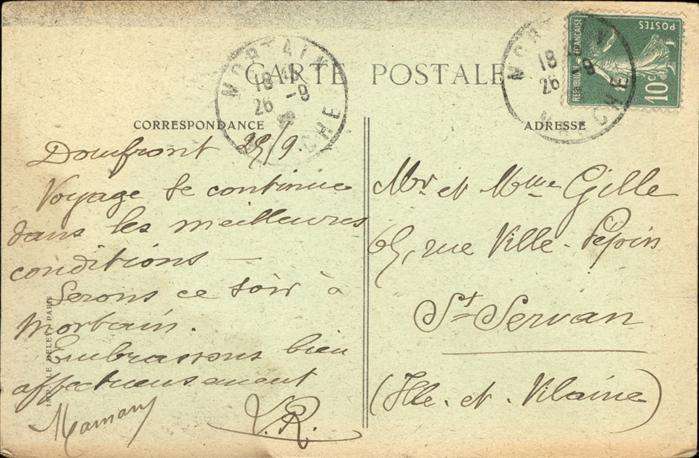 CARTE POSTALE
CORRESPONDANCE
ADRESSE
MORTAIN
18
26 -9
MANCHE
MORTAIN
18
26 -9
MANCHE
10c
Domfront 25/9
Voyage se continue
dans les meilleures
conditions —
Serons ce soir à
Mortain.
Embrassons bien
affectueusement
Maman
V.R.
Mr. et Mme Gille
65, rue Ville-Pépin
St-Servan
(Ille-et-Vilaine)